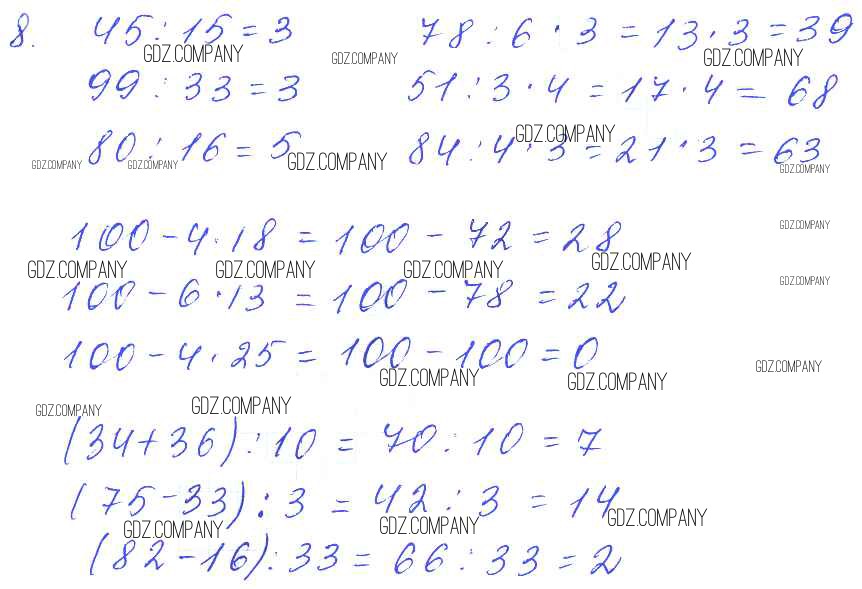 8. 45 : 15 = 3 78 : 6 · 3 = 13 · 3 = 39
GDZ.COMPANY GDZ.COMPANY GDZ.COMPANY
99 : 33 = 3 51 : 3 · 4 = 17 · 4 = 68
GDZ.COMPANY
80 : 16 = 5 84 : 4 · 3 = 21 · 3 = 63
GDZ.COMPANY GDZ.COMPANY GDZ.COMPANY GDZ.COMPANY
GDZ.COMPANY
100 - 4 · 18 = 100 - 72 = 28
GDZ.COMPANY GDZ.COMPANY GDZ.COMPANY GDZ.COMPANY
GDZ.COMPANY
100 - 6 · 13 = 100 - 78 = 22
100 - 4 · 25 = 100 - 100 = 0
GDZ.COMPANY
GDZ.COMPANY GDZ.COMPANY
GDZ.COMPANY GDZ.COMPANY
(34 + 36) : 10 = 70 : 10 = 7
(75 - 33) : 3 = 42 : 3 = 14
GDZ.COMPANY GDZ.COMPANY GDZ.COMPANY
(82 - 16) : 33 = 66 : 33 = 2